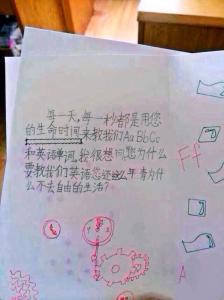 每一天,每一秒都是用您
的生命时间来教我们AaBbCc
和英语单词,我很想问您为什么
要教我们英语您还么年青为什
么不去自由的生活?
Ft
A